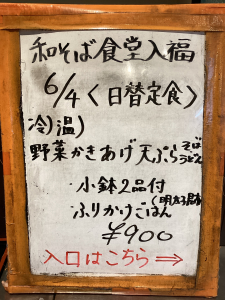 和そば食堂入福
6/4〈日替定食〉
冷)温)
野菜かきあげ天ぷらそばうどん
・小鉢2品付
・ふりかけごはん(明太子昆布)
¥900
入口はこちら⇒